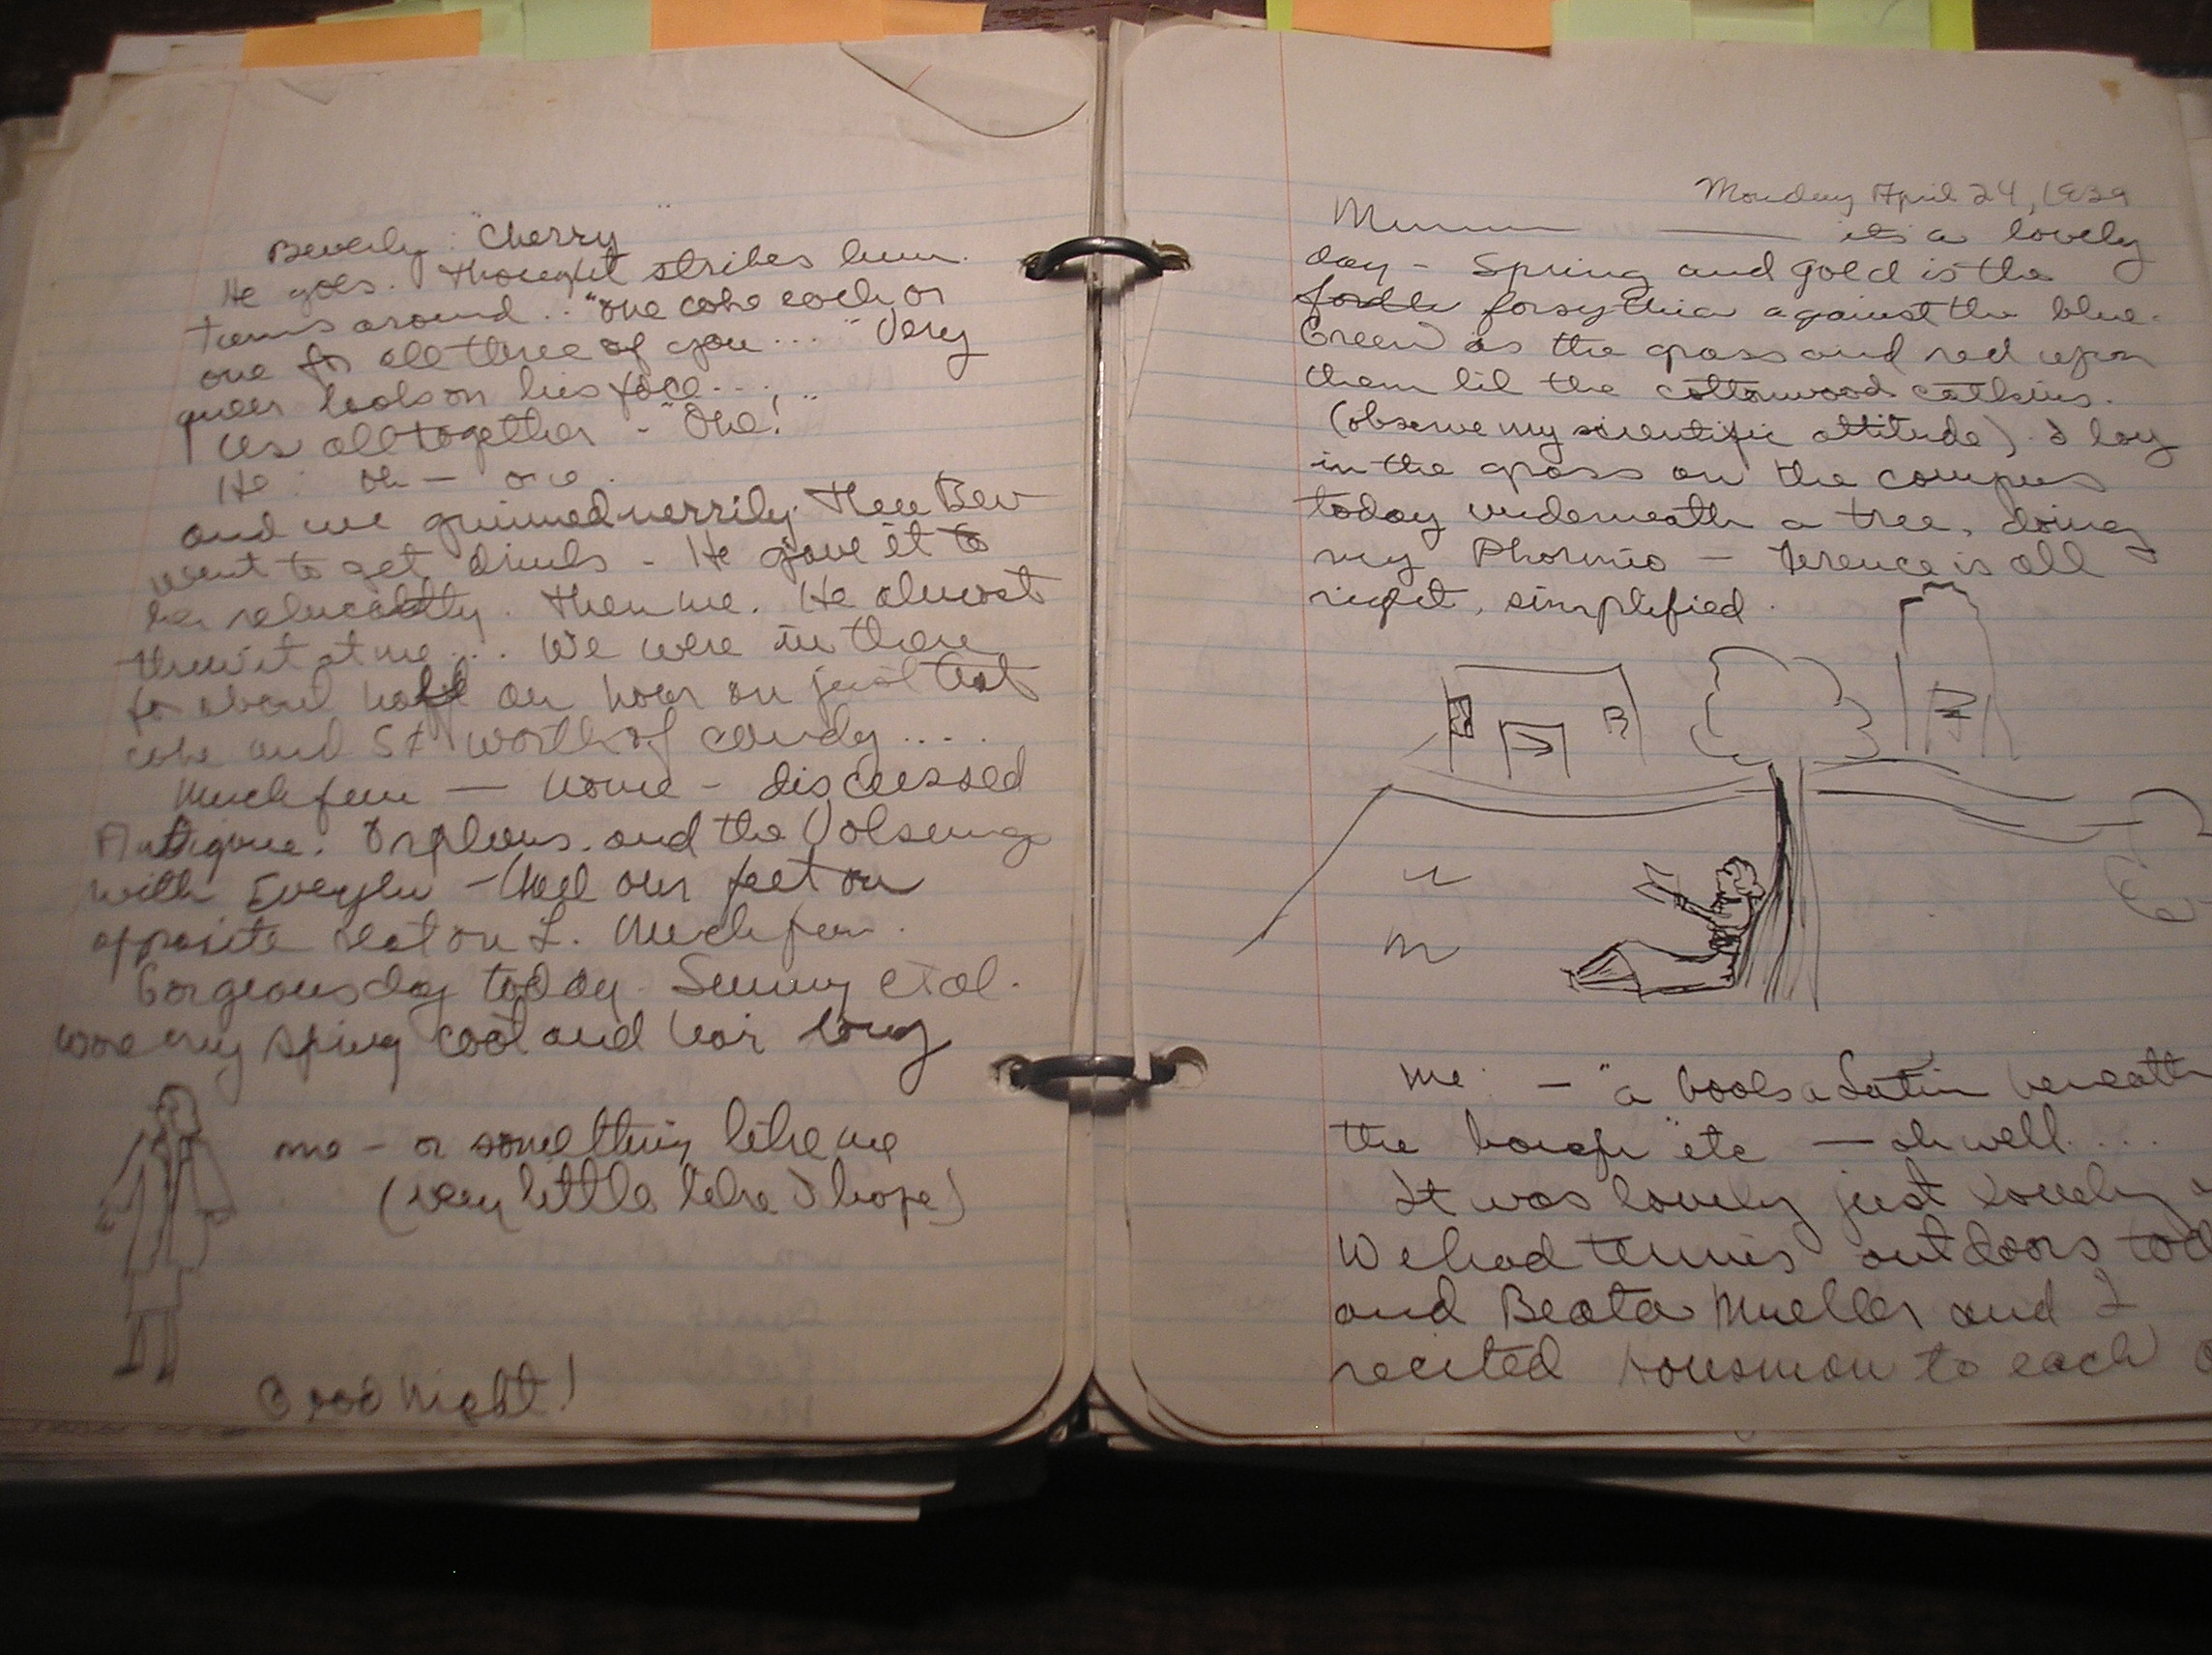 Beverly: "Cherry"
He goes. Thought strikes him.
turns around.. "one coke each or
one for all three of you..." Very
queer looks on his face....
Us all together - "One!"
He: oh — one.
and we grinned merrily. Then Bev
went to get drinks - He gave it to
her reluctantly. Then me. He almost
threw it at me... We were in there
for about half an hour on just that
coke and 5¢ worth of candy....
Much fun — home - discussed
Antigone, Orpheus, and the Volsungs
with Evelyn - Had our feet on
opposite seat on L. Much fun.
Gorgeous day today. Sunny et al.
wore my spring coat and hair long
me - or something like me
(very little like I hope)
Good Night!
Monday April 24, 1939
Mmmm —— its a lovely
day - Spring and gold is the
forsythia against the blue.
Green is the grass and red upon
them lil the cottonwood catkins.
(observe my scientific attitude). I lay
in the grass on the campus
today underneath a tree, doing
my Phormio — Terence is all
right, simplified.
me: — "a book a Latin beneath
the bough" etc — oh well....
It was lovely just lovely
We had tennis outdoors tod
and Beata Mueller and I
recited Housman to each o